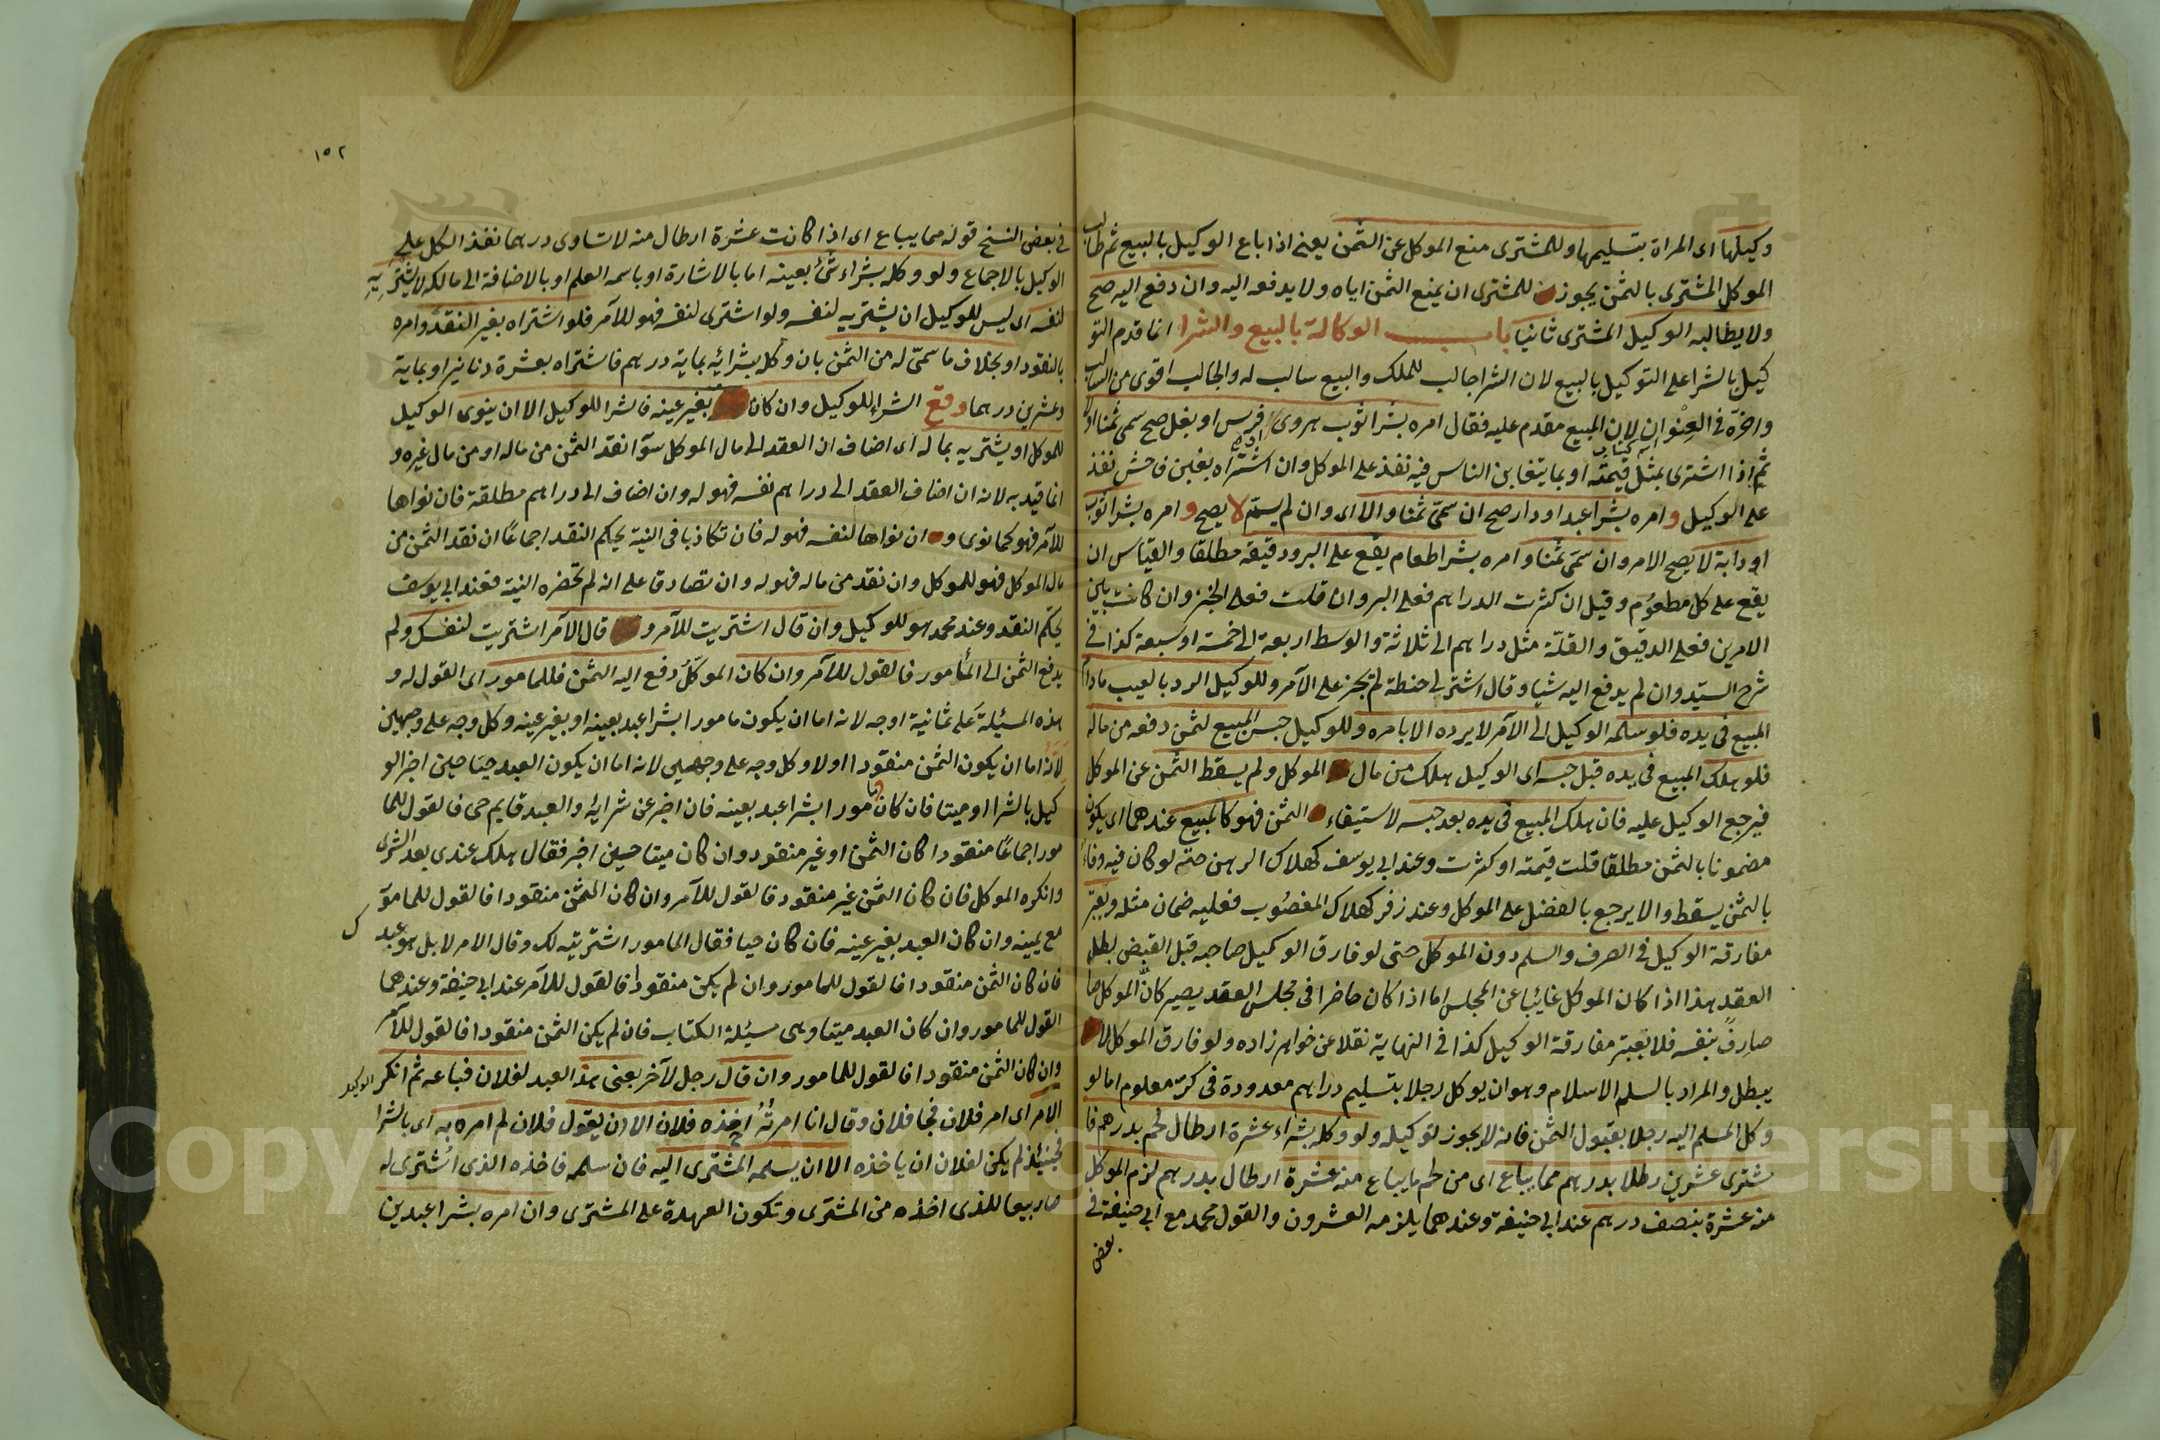 وكيلها اى المراة بتسليمها وللمشترى منع الموكل عن الثمن يعنى اذا باع الوكيل بالبيع ثم طالب
الموكل المشترى بالثمن يجوز للمشترى ان يمنع الثمن اياه ولا يدفعه اليه وان دفع اليه صح
ولا يطالبه الوكيل المشترى ثانيا باب الوكالة بالبيع والشرا انما قدم التو
كيل بالشرا على التوكيل بالبيع لان الشرا جالب للملك والبيع سالب له والجالب اقوى من السالب
واخره فى العنوان لان المبيع مقدم عليه فقال امره بشرا ثوب هروى او فرس او بغل صح سمى ثمنا او لا
ثم اذا اشترى بمثل قيمته او بما يتغابن الناس فيه نفذ على الموكل وان اشتراه بغبن فاحش نفذ
على الوكيل وامره بشرا عبد او دار صح ان سمى ثمنا والا اى وان لم يسم لا يصح وامره بشرا ثوب
او دابة لا يصح الامر وان سمى ثمنا وامره بشرا طعام يقع على البر ودقيقه مطلقا والقياس ان
يقع على كل مطعوم وقيل ان كثرت الدراهم فعلى البر وان قلت فعلى الخبز وان كانت بين
الامرين فعلى الدقيق والقلة مثل دراهم الى ثلاثة والوسط اربعة الى خمسة او سبعة كذا فى
شرح السيد وان لم يدفع اليه شيا وقال اشتر لى حنطة لم يجز على الآمر وللوكيل الرد بالعيب مادام
المبيع فى يده فلو سلمه الوكيل الى الآمر لا يرده الا بامره وللوكيل حبس المبيع لثمن دفعه من ماله
فلو هلك المبيع فى يده قبل حبسه اى الوكيل هلك من مال الموكل ولم يسقط الثمن عن الموكل
فيرجع الوكيل عليه فان هلك المبيع فى يده بعد حبسه لاستيفاء الثمن فهو كالمبيع عندهما اى يكون
مضمونا بالثمن مطلقا قلت قيمته او كثرت وعند ابى يوسف كهلاك الرهن حتى لو كان فيه وفاء
بالثمن يسقط والا يرجع بالفضل على الموكل وعند زفر كهلاك المغصوب فعليه ضمان مثله ويعتبر
مفارقة الوكيل فى الصرف والسلم دون الموكل حتى لو فارق الوكيل صاحبه قبل القبض بطل
العقد هذا اذا كان الموكل غائبا عن المجلس اما اذا كان حاضرا فى مجلس العقد يصير كان الموكل
صارف بنفسه فلا تعتبر مفارقة الوكيل كذا فى النهاية نقلا عن خواهر زاده ولو فارق الموكل لا
يبطل والمراد بالسلم الاسلام وهو ان يوكل رجلا بتسليم دراهم معدودة فى كر معلوم اما لو
وكل المسلم اليه رجلا بقبول الثمن فانه لا يجوز توكيله ولو وكله بشراء عشرة ارطال لحم بدرهم فا
شترى عشرين رطلا بدرهم مما يباع اى من لحم ما يباع منه عشرة ارطال بدرهم لزم الموكل
منه عشرة بنصف درهم عند ابى حنيفة وعندهما يلزمه العشرون والقول محمد مع ابى حنيفة فى
بعض
١٥٢
فى بعض النسخ قوله مما يباع اى اذا كانت عشرة ارطال منه لا تساوى درهما نفذ الكل على
الوكيل بالاجماع ولو وكله بشراء شئ بعينه اما بالاشارة او باسمه العلم او بالاضافة الى مالكه لا يشتريه
لنفسه اى ليس للوكيل ان يشتريه لنفسه ولو اشترى لنفسه فهو للآمر فلو اشتراه بغير النقد وامره
بالنقود او بخلاف ما سمى له من الثمن بان وكل بشرائه بماية درهم فاشتراه بعشرة دنانير او بماية
وعشرين درهما وقع الشراء للوكيل وان كان بغير عينه فالشرا للوكيل الا ان ينوى الوكيل
للموكل او يشتريه بماله اى اضاف ان العقد الى مال الموكل سوآ نقد الثمن من ماله او من مال غيره و
انما قيد به لانه ان اضاف العقد الى دراهم نفسه فهو له وان اضاف الى دراهم مطلقة فان نواها
للآمر فهو كما نوى وان نواها لنفسه فهو له فان تكاذبا فى النية يحكم النقد اجماعا ان نقد الثمن من
مال الموكل فهو للموكل وان نقد من ماله فهو له وان تصادقا على انه لم تحضره النية فعند ابى يوسف
يحكم النقد وعند محمد هو للوكيل وان قال اشتريت للآمر و قال الآمر اشتريت لنفسك ولم
يدفع الثمن الى المأمور فالقول للآمر وان كان الموكل دفع اليه الثمن فللمامور اى القول له و
هذه المسئلة على ثمانية اوجه لانه اما ان يكون مامورا بشرا عبد بعينه او بغير عينه وكل وجه على وجهين
لانه اما ان يكون الثمن منقودا اولا وكل وجه على وجهين لانه اما ان يكون العبد حيا حين اخبر الو
كيل بالشرا او ميتا فان كان مامورا بشرا عبد بعينه فان اخبر عن شرائه والعبد قايم حى فالقول للما
مور اجماعا منقودا كان الثمن او غير منقود وان كان ميتا حين اخبر فقال هلك عندى بعد الشرى
وانكره الموكل فان كان الثمن غير منقود فالقول للآمر وان كان الثمن منقودا فالقول للمامو
مع يمينه وان كان العبد بغير عينه فان كان حيا فقال المامور اشتريته لك وقال الامر لا بل هو عبد
ك
فان كان الثمن منقودا فالقول للمامور وان لم يكن منقودا فالقول للآمر عند ابى حنيفة وعندهما
القول للمامور وان كان العبد ميتا وهى مسئلة الكتاب فان لم يكن الثمن منقودا فالقول للآمر
وان كان الثمن منقودا فالقول للمامور وان قال رجل لآخر بعنى هذا العبد لفلان فباعه ثم انكر الوكيل
الامر اى امر فلان فجا فلان وقال انا امرته اخذه فلان الا ان يقول فلان لم امره به اى بالشرا
فحينئذ لم يكن لفلان ان ياخذه الا ان يسلمه المشترى اليه فان سلمه فاخذه الذى اشترى له
صار بيعا للذى اخذه من المشترى وتكون العهدة على المشترى وان امره بشرا عبدين